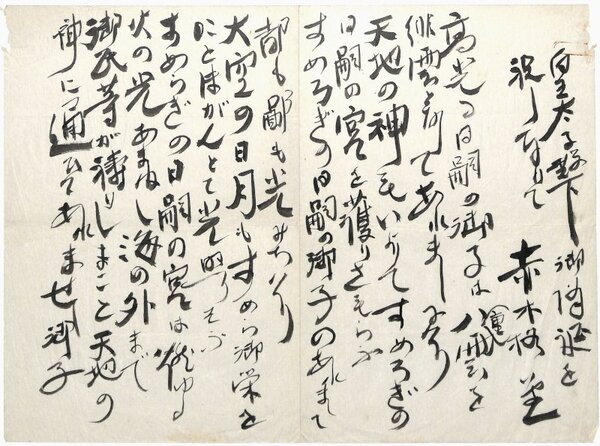 皇太子殿下御降誕を
祝しまつりて
赤木格堂
高光る日嗣の御子は八雲を
てあれましけり
天地の神もいよりてすめろぎの
日嗣の宮を護りさもらふ
すめろぎの日嗣の御子のあれまして
都も鄙も光みちけり
大空の日月もすめら御栄を
ことほがんとて光そふ
すめらぎの日嗣の宮は燃ゆる
火の光あまねし海の外まで
御民等が祷りしまこと天地の
神に通ひてあれませ御子